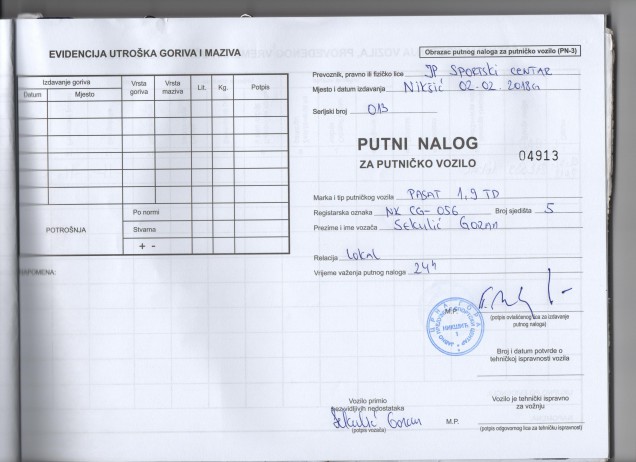 EVIDENCIJA UTROŠKA GORIVA I MAZIVA
Izdavanje goriva
Datum
Mjesto
Vrsta goriva
Vrsta maziva
Lit.
Kg.
Potpis
POTROŠNJA
Po normi
Stvarna
+ -
NAPOMENA:
Obrazac putnog naloga za putničko vozilo (PN-3)
Prevoznik, pravno ili fizičko lice JP SPORTSKI CENTAR
Mjesto i datum izdavanja Nikšić 02-02.2018g
Serijski broj 013
PUTNI NALOG
ZA PUTNIČKO VOZILO
04913
Marka i tip putničkog vozila PASAT 1,9 TD
Registarska oznaka NK CG-056 Broj sjedišta 5
Prezime i ime vozača SEKULIĆ GORAN
Relacija LOKAL
Vrijeme važenja putnog naloga 24h
M.P.
(potpis ovlašćenog lica za izdavanje
putnog naloga)
НИКШИЋ
Broj i datum potvrde o
tehničkoj ispravnosti vozila
Vozilo primio
bez vidljivih nedostataka
Sekulić Goran
(potpis vozača)
Vozilo je tehnički ispravno
za vožnju
M.P.
(potpis odgovornog lica za tehničku ispravnost)